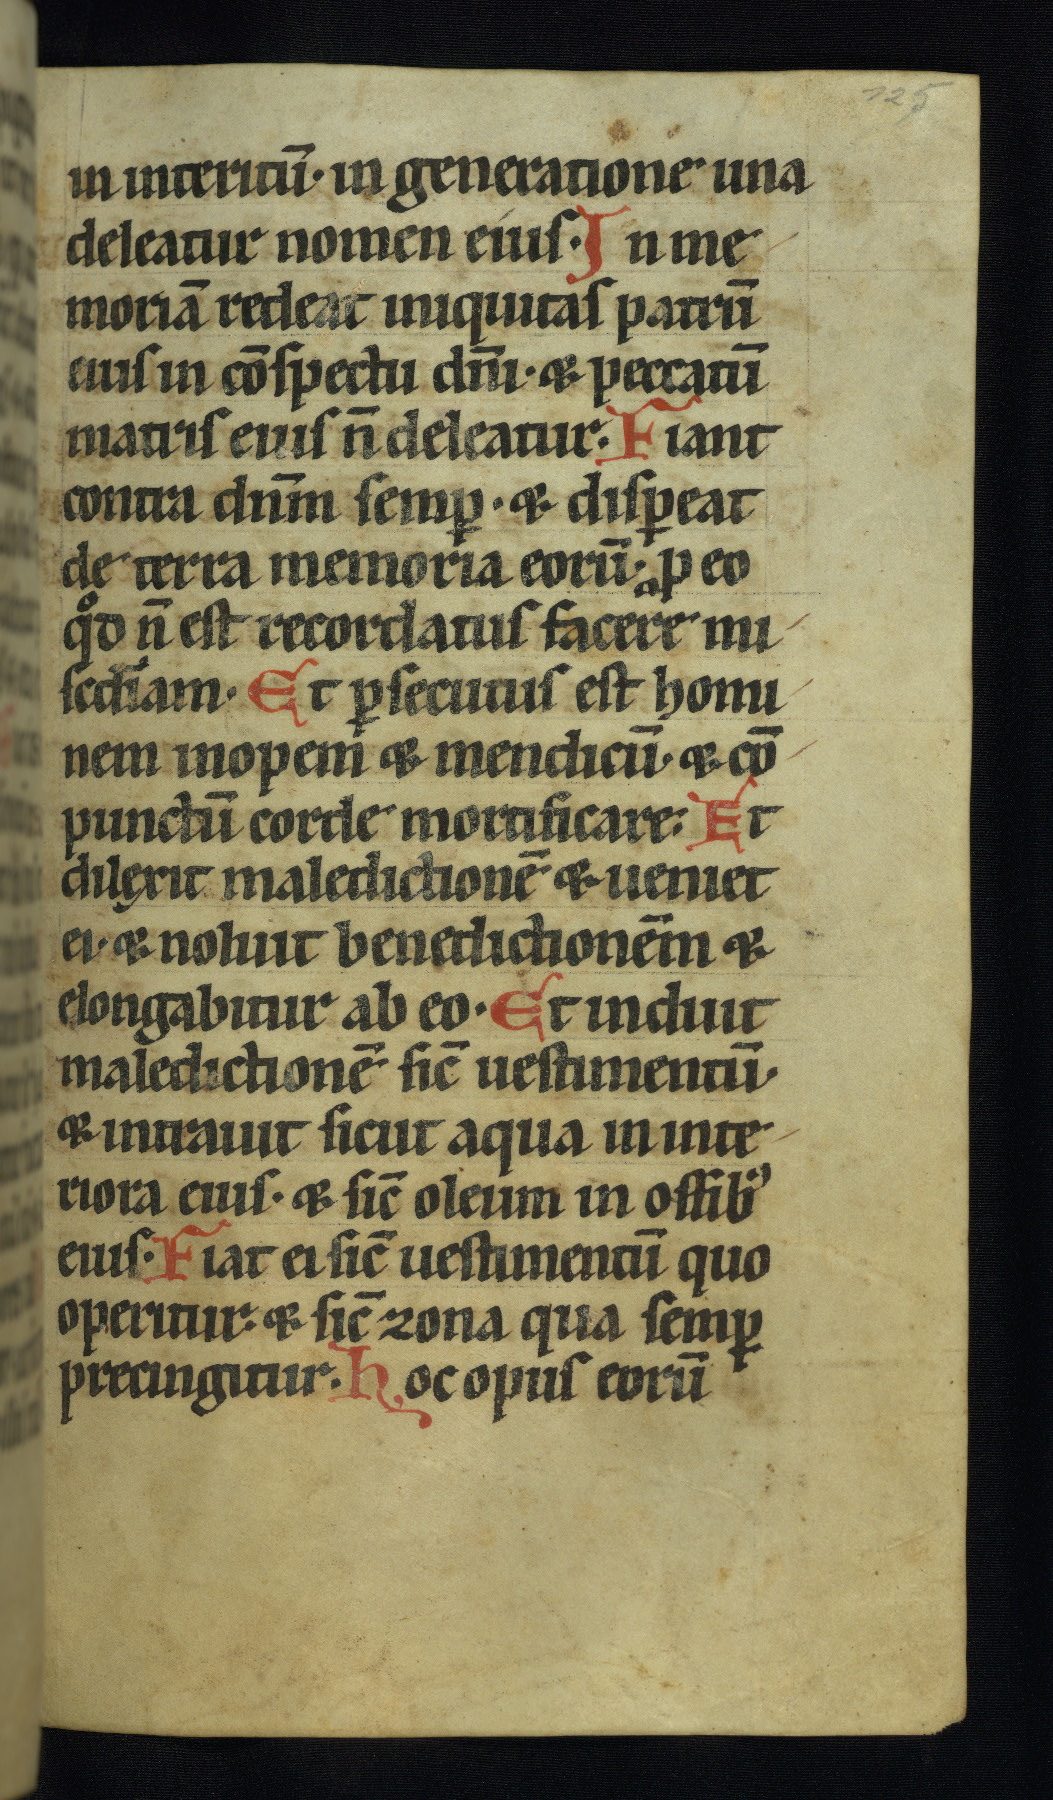 125
in interitū· in generatione una
deleatur nomen eius· In me
moriā redeat iniquitas patrū
eius in cōspectu dn̄i· & peccatū
matris eius n̄ deleatur· Fiant
contra dn̄m semꝑ· & disꝑeat
de terra memoria eorū· ꝓ eo
qͦd n̄ est recordatus facere mi
scd̄iam· Et ꝑsecutus est homi
nem inopem & mendicū· & cō
punctū corde mortificare: Et
dilexit maledictionē & ueniet
ei· & noluit benedictionēm &
elongabitur ab eo· Et induit
maledictionē sic̄ uestimentū·
& intrauit sicut aqua in inte
riora eius· & sic̄ oleum in ossibꝰ
eius· Fiat ei sic̄ uestimentū quo
operitur· & sic̄ zona qua semꝑ
precingitur· Hoc opus eorū